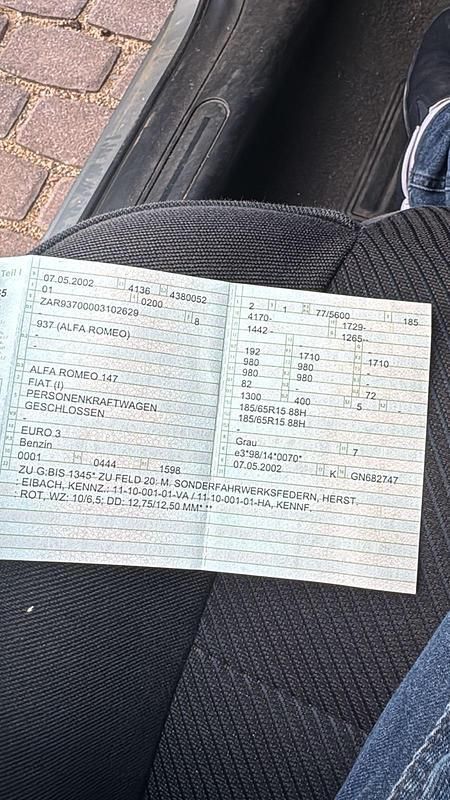 Teil I
07.05.2002 4136 4380052
01 0200
ZAR93700003102629 8
-
937 (ALFA ROMEO)
-
ALFA ROMEO 147
FIAT (I)
PERSONENKRAFTWAGEN
GESCHLOSSEN
-
EURO 3
Benzin
0001 0444 1598
2 1 77/5600 185
4170- 1729-
1442 - 1265--
192 1710 1710
980 980
980 980
82 72
1300 400 5 -
185/65R15 88H
185/65R15 88H
-
Grau 7
e3*98/14*0070*
07.05.2002 K GN682747
ZU G:BIS 1345* ZU FELD 20: M. SONDERFAHRWERKSFEDERN, HERST.
: EIBACH, KENNZ.: 11-10-001-01-VA / 11-10-001-01-HA, KENNF.
: ROT, WZ: 10/6,5; DD: 12,75/12,50 MM* **